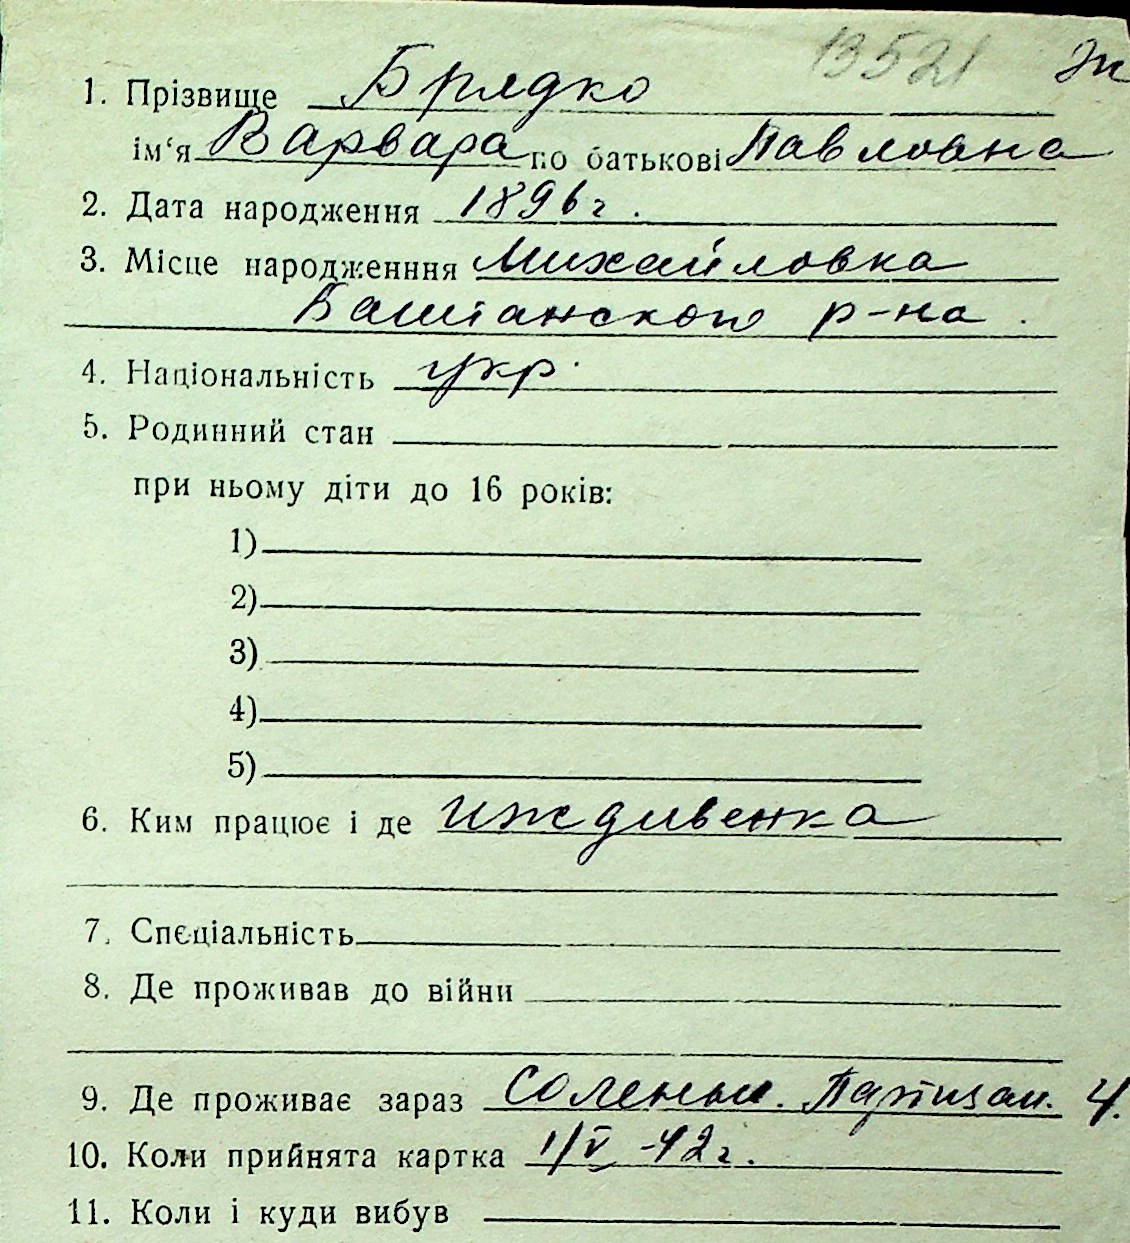 13521 Эк
1. Прізвище Брядко
ім'я Варвара по батькові Павловна
2. Дата народження 1896 г.
3. Місце народженння Михайловка
Баштанского р-на.
4. Національність укр.
5. Родинний стан
при ньому діти до 16 років:
1)
2)
3)
4)
5)
6. Ким працює і де иждивенка
7. Спєціальність
8. Де проживав до війни
9. Де проживає зараз Солены. Партизан. 4.
10. Коли прийнята картка 1/V -42 г.
11. Коли і куди вибув